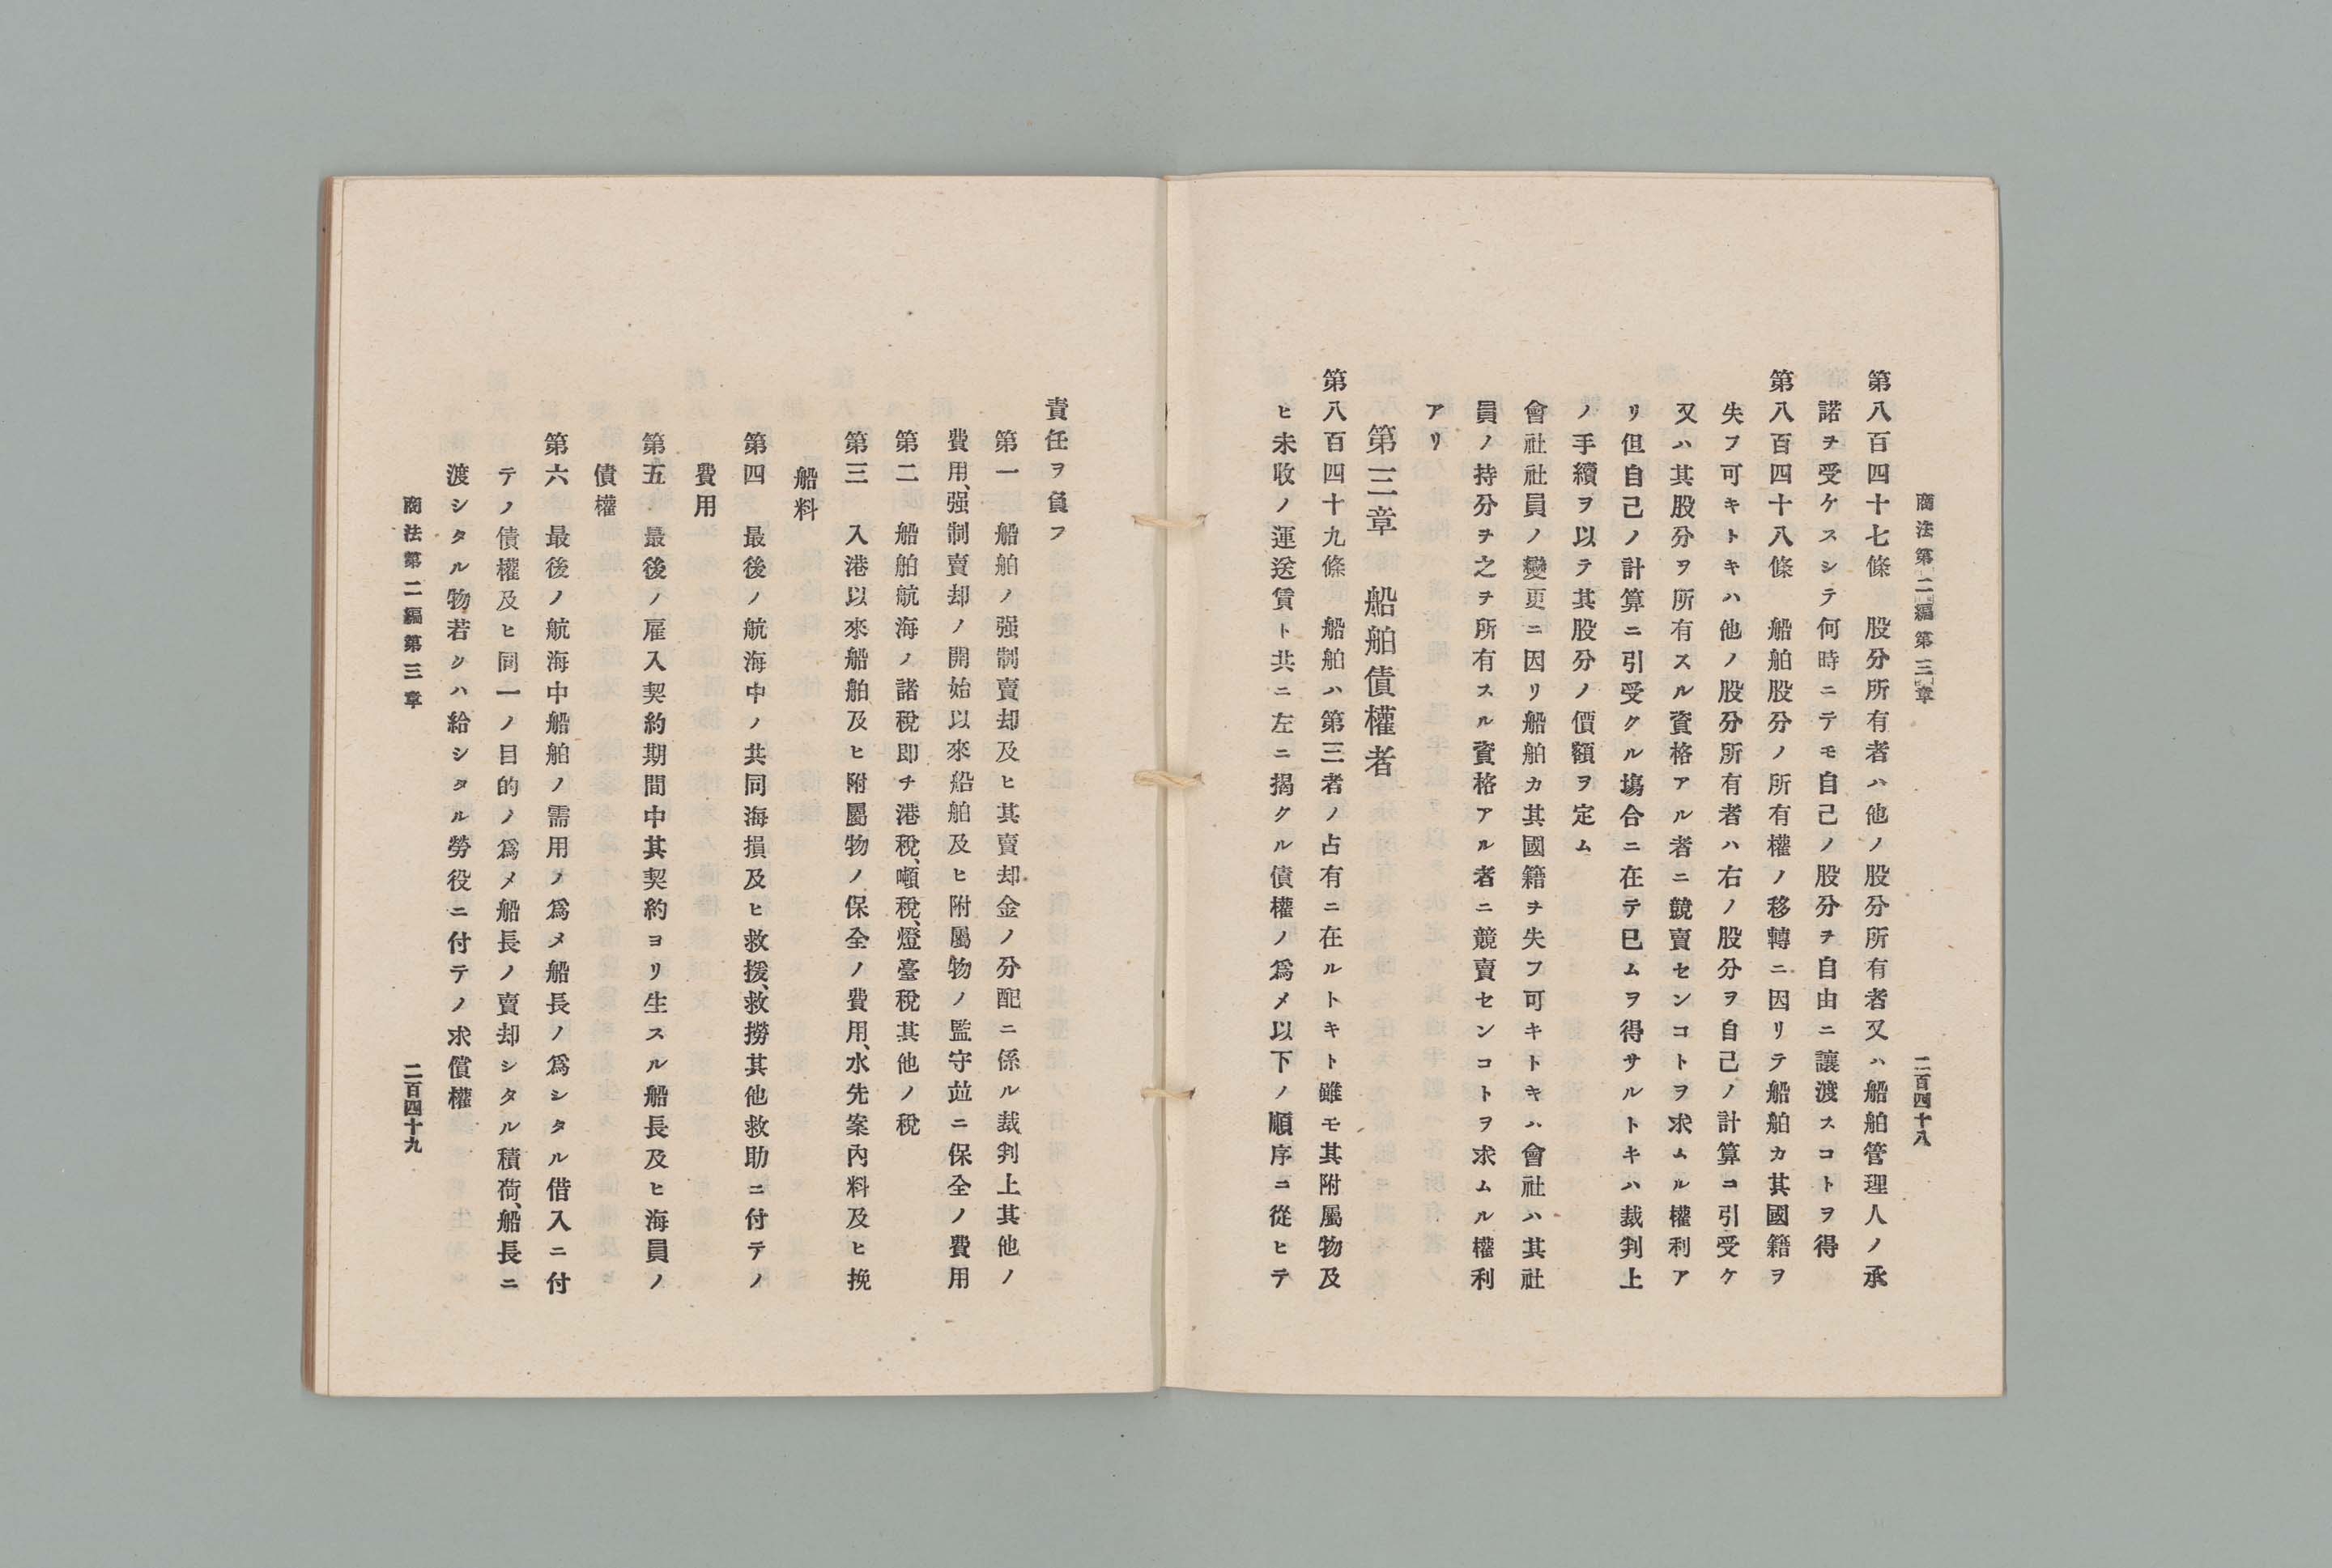 商法第二編第三章　二百四十八
第八百四十七條　股分所有者ハ他ノ股分所有者又ハ船舶管理人ノ承
諾ヲ受ケスシテ何時ニテモ自己ノ股分ヲ自由ニ讓渡スコトヲ得
第八百四十八條　船舶股分ノ所有權ノ移轉ニ因リテ船舶カ其國籍ヲ
失フ可キトキハ他ノ股分所有者ハ右ノ股分ヲ自己ノ計算ニ引受ケ
又ハ其股分ヲ所有スル資格アル者ニ競賣センコトヲ求ムル權利ア
リ但自己ノ計算ニ引受クル塲合ニ在テ已ムヲ得サルトキハ裁判上
ノ手續ヲ以テ其股分ノ價額ヲ定ム
會社社員ノ變更ニ因リ船舶カ其國籍ヲ失フ可キトキハ會社ハ其社
員ノ持分ヲ之ヲ所有スル資格アル者ニ競賣センコトヲ求ムル權利
アリ
第三章　船舶債權者
第八百四十九條　船舶ハ第三者ノ占有ニ在ルトキト雖モ其附屬物及
ヒ未收ノ運送賃ト共ニ左ニ揭クル債權ノ爲メ以下ノ順序ニ從ヒテ
責任ヲ負フ
第一　船舶ノ强制賣却及ヒ其賣却金ノ分配ニ係ル裁判上其他ノ
費用、强制賣却ノ開始以來船舶及ヒ附屬物ノ監守竝ニ保全ノ費用
第二　船舶航海ノ諸稅卽チ港稅、噸稅、燈臺稅其他ノ稅
第三　入港以來船舶及ヒ附屬物ノ保全ノ費用、水先案內料及ヒ挽
船料
第四　最後ノ航海中ノ共同海損及ヒ救援、救撈其他救助ニ付テノ
費用
第五　最後ノ雇入契約期間中其契約ヨリ生スル船長及ヒ海員ノ
債權
第六　最後ノ航海中船舶ノ需用ノ爲メ船長ノ爲シタル借入ニ付
テノ債權及ヒ同一ノ目的ノ爲メ船長ノ賣却シタル積荷、船長ニ
渡シタル物若クハ給シタル勞役ニ付テノ求償權
商法第二編第三章　二百四十九